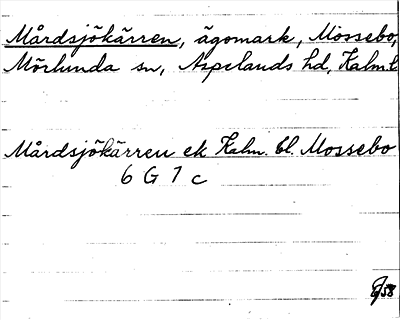 Mårdsjökärren, ägomark, Mossebo,
Mörlunda sn, Aspelands hd, Kalm. l
Mårdsjökärren ek Kalm. bl. Mossebo
6 G 7 c
58